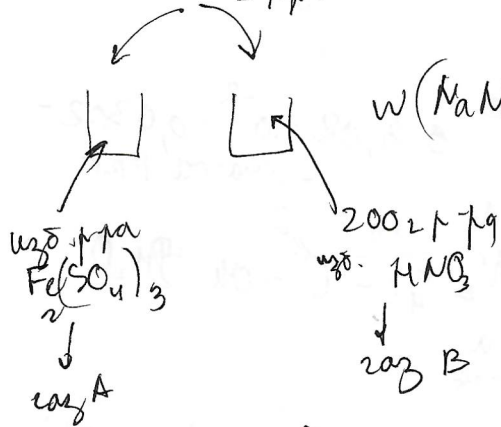 w(NaN
изб. р-ра
Fe2(SO4)3
газ A
200 г р-ра
изб. HNO3
газ B